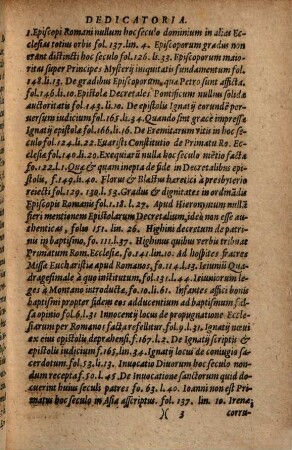 DEDICATORIA.
1.Episcopi Romani nullum hoc seculo dominium in alias Ec-
clesias totius orbis fol.137.lin.4. Episcoporum gradus non
erant distincti hoc seculo fol.126.li.33. Episcoporum maio-
ritas super Principes Mysterij iniquitatis fundamentum fol.
148.li.13. De gradibus Episcoporum, qua Petro sunt afficta.
fol.146.li.10. Epistolæ Decretales Pontificum nullius solidæ
auctoritatis fol.143.li.10. De epistolis Ignatij eorundẽ per-
uersum iudicium fol.165.li.34. Quando sint græcè impressæ
Ignatij epistolæ fol.166.li.16. De Eremitarum vitis in hoc se-
culo fol.124.li.22. Euaristi Constitutio de Primatu Ro. Ec-
clesiæ fol.140.li.20. Exequiarũ nulla hoc seculo mẽtio facta
fo.122.li.1. Quæ & quam inepta ac falsa sint in Decretalibus epi-
stolis, f 149.li.40. Florus & Blastus hæretici à presbyterio
reiecti fol.129. li.53. Gradus & dignitates in ordinãdis
Episcopis Romanis fol.118.l.27. Apud Hieronymum nullã
fieri mentionem Epistolarum Decretalium, ideò non esse au-
thenticas, folio 151. lin. 26. Highini decretum de patri-
nis in baptismo, fo.111.li.37. Highinus quibus verbis tribuat
Primatum Rom. Ecclesiæ, fo.141.lin.10. Ad hospites fratres
Missa Eucharistia apud Romanos, fo.114.l.13. Ieiunij Qua-
dragesimalis à quo institutum, fol.131.l.44. Ieiuniorum le-
ges à Montano introductæ, fo.10.li.61. Infantes affici bonis
baptismi propter fidem eos adducentium ad baptismum fal-
sa opinio fol.61.l.31 Innocentij locus de propugnatione Eccle-
siarum per Romanos facta refellatur. fol.9.l.31. Ignatij neui
ex eius epistolis deprahensi, f.167.l.2. De Ignatij scriptis &
epistolis iudicium fol.165.lin.34. Ignatij locus de coniugio sa-
cerdotum. fol.13.l.30. De Inuocatio Diuorum hoc seculo non-
dum recepta f.50.l.45. De Inuocatione sanctorum quid do-
cuerint huius seculi patres fo.63.l.40. Ioanni non est Pri-
matus hoc seculo in Asia asscriptus. fol. 137. lin. 10. Irenæ
)( 3 corru-